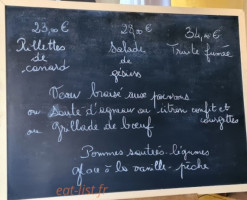 23,00€ 28,00€ 34,00€
Rillettes Salade Truite fumée
de de
canard gésiers
Veau braisé aux poivrons
ou Sauté d'agneau au citron confit et
courgettes
ou Grillade de bœuf
Pommes sautées - légumes
glace à la vanille - pêche
eat-list.fr